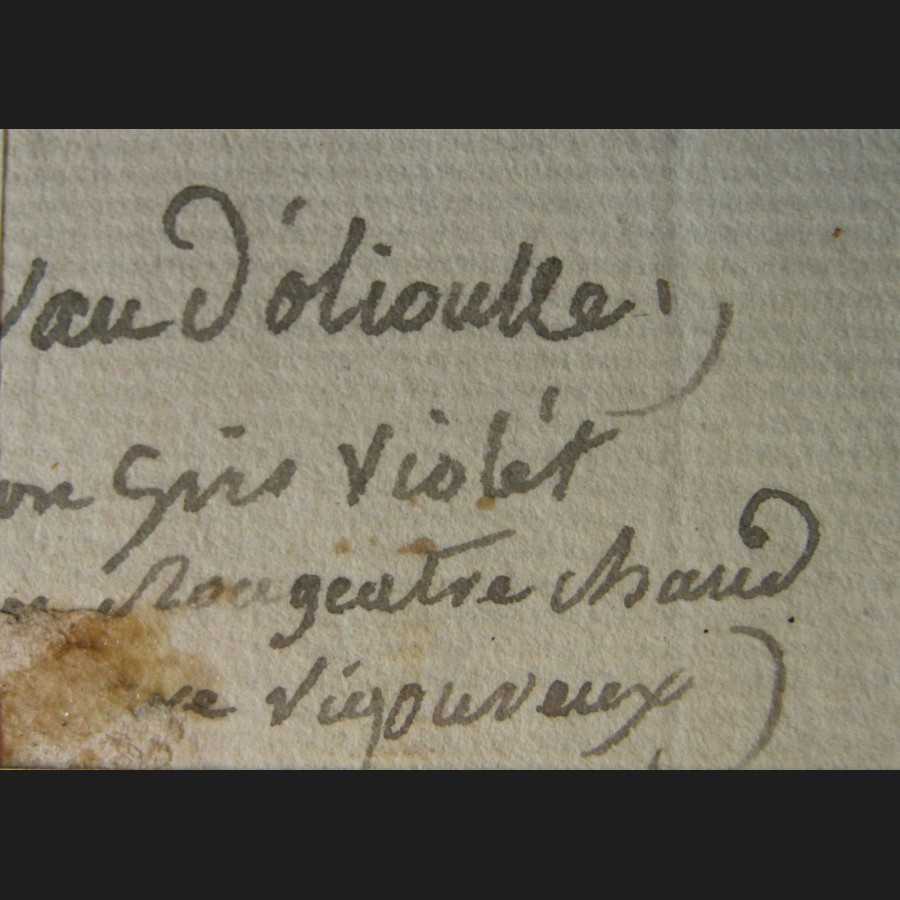 vau d'olioulle.
on Gris Violét
Rougeatre chaud
vigoureux